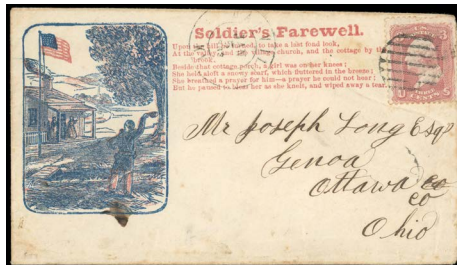 Soldier's Farewell.
Upon the hill he turned, to take a last fond look,
At the valley, and the village church, and the cottage by the
brook,
Beside that cottage porch, a girl was on her knees;
She held aloft a snowy scarf, which fluttered in the breeze;
She breathed a prayer for him—a prayer he could not hear;
But he paused to bless her as she knelt, and wiped away a tear.
3
U S
CENTS
Mr Joseph Long Esqr
Genoa
Ottawa Co
Co
Ohio